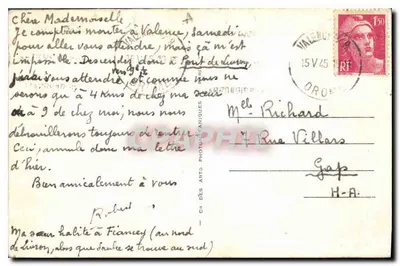 Chère Mademoiselle
Je comptais monter à Valence, Samedi
pour aller vous attendre, mais ça m'est
impossible. Descendez donc à Pont de Livron,
j'irai vous attendre, et comme nous ne
vers 9h
serons qu'à 4 Kms de chez ma sœur
et à 9 de chez moi, nous nous
débrouillerons toujours de rentrer
Ceci, annule donc ma lettre
d'hier.
Bien amicalement à vous
Robert
Ma sœur habite à Fiancey (au nord
de Livron, alors que Saulce se trouve au sud)
CH DES ARTS PHOTOMÉCANIQUES
Melle Richard
7 Rue Villars
Gap
H-A.
15 V 45
DROME
1f50
RF